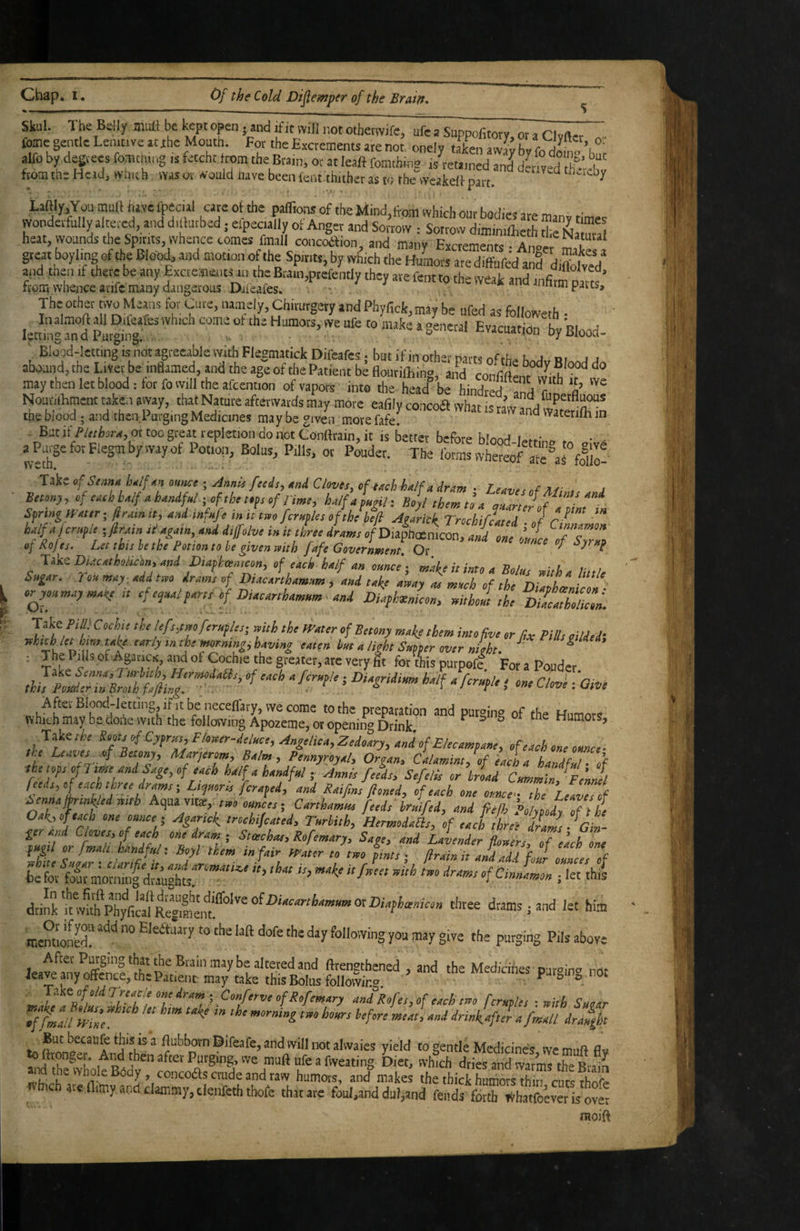 Chap. 1. Of the Cold Distemper of the Brain. 5
Skul. The Belly must be kept open; and if it will not otherwise, use a Suppository, or a Clyster, or
some gentle Lenitive at the Mouth. For the Excrements are not onely taken away by so doing, but
also by degrees somthing is fetcht from the Brain, or at least somthing is retained and derived thereby
from the Head, which was or would have been sent thither as to the weakest part.
Lastly, You must have special care of the passions of the Mind, from which our bodies are many times
wonderfully altered, and disturbed; especially of Anger and Sorrow: Sorrow diminisheth the Natural
heat, wounds the Spirits, whence comes small concoction, and many Excrements: Anger makes a
great boyling of the Blood, and motion of the Spirits, by which the Humors are diffused and dissolved,
and then if there be any Excrements in the Brain, presently they are sent to the weak and infirm parts,
from whence arise many dangerous Diseases.
The other two Means for Cure, namely, Chirurgery and Physick, may be used as followeth:
In almost all Diseases which come of the Humors, we use to make a general Evacuation by Blood-
letting and Purging.
Blood-letting is not agreeable with Flegmatick Diseases; but if in other parts of the body Blood do
abound, the Liver be inflamed, and the age of the Patient be flourishing, and consistent with it, we
may then let blood: for so will the ascention of vapors into the head be hindred, and superfluous
Nourishment taken away, that Nature afterwards may more easily concoct what is raw and waterish in
the blood; and then Purging Medicines may be given more safe.
But if Plethora, or too great repletion do not Constrain, it is better before blood-letting to give
a Purge for Flegm by way of Potion, Bolus, Pills, or Pouder. The forms whereof are as follo-
weth.
Take of Senna half an ounce; Annis seeds, and Cloves, of each half a dram; Leaves of Mints and
Betony, of each half a handful; of the tops of Time, half a pugil: Boyl them to a quarter of a pint in
Spring Water; strain it, and infuse in it two scruples of the best Agarick Trochiscated; of Cinnamon
half a scruple; strain it again, and dissolve in it three drams of Diaphœnicon, and one ounce of Syrup
of Roses. Let this be the Potion to be given with safe Government. Or
Take Diacatholicon, and Diaphœnicon, of each half an ounce; make it into a Bolus with a little
Sugar. You may add two drams of Diacarthamum, and take away as much of the Diaphœnicon:
or you may make it of equal parts of Diacarthamum and Diaphœnicon, without the Diacatholicon.
Or.
Take Pill: Cochie the less, two scruples; with the Water of Betony make them into five or six Pills gilded;
which let him take early in the morning, having eaten but a light Supper over night.
The Pills of Agarick, and of Cochie the greater, are very fit for this purpose. For a Pouder.
Take Senna, Turbith, Hermodacts, of each a scruple; Diagridium half a scruple; one Clove: Give
this Pouder in Broth fasting.
After Blood-letting, if it be necessary, we come to the preparation and purging of the Humors,
which may be done with the following Apozeme, or opening Drink.
Take the Roots of Cyprus, Flower-deluce, Angelica, Zedoary, and of Elecampane, of each one ounce;
the Leaves of Betony, Marjerom, Balm, Pennyroyal, Organ, Calamint, of each a handful; of
the tops of Time and Sage, of each half a handful; Annis seeds, Sefelis or broad Cummin, Fennel
seeds, of each three drams; Liquoris scraped, and Raisins stoned, of each one ounce; the Leaves of
Senna sprinkled with Aqua vitæ, two ounces; Carthamus seeds bruised, and fresh Polypody of the
Oak, of each one ounce; Agarick trochiscated, Turbith, Hermodacts, of each three drams; Gin-
ger and Cloves, of each one dram; Stœchas, Rosemary, Sage, and Lavender flowers, of each one
pugil or small handful: Boyl them in fair Water to two pints; strain it and add four ounces of
white Sugar: clarifie it, and aromatize it, that is, make it sweet with two drams of Cinnamon; let this
be for four morning draughts.
In the first and last draught dissolve of Diacarthamum or Diaphœnicon three drams; and let him
drink it with Physical Regiment.
Or if you add no Electuary to the last dose the day following you may give the purging Pils above
mentioned.
After Purging that the Brain may be altered and strengthened, and the Medicines purging not
leave any offence, the Patient may take this Bolus following.
Take of old Treacle one dram; Conserve of Rosemary and Roses, of each two scruples: with Sugar
make a Bolus, which let him take in the morning two hours before meat, and drink after a small draught
of small Wine.
But because this is a stubborn Disease, and will not alwaies yield to gentle Medicines, we must fly
to stronger. And then after Purging, we must use a sweating Diet, which dries and warms the Brain
and the whole Body, concocts crude and raw humors, and makes the thick humors thin, cuts those
which are slimy and clammy, clenseth those that are foul, and dul, and sends forth whatsoever is over
moist